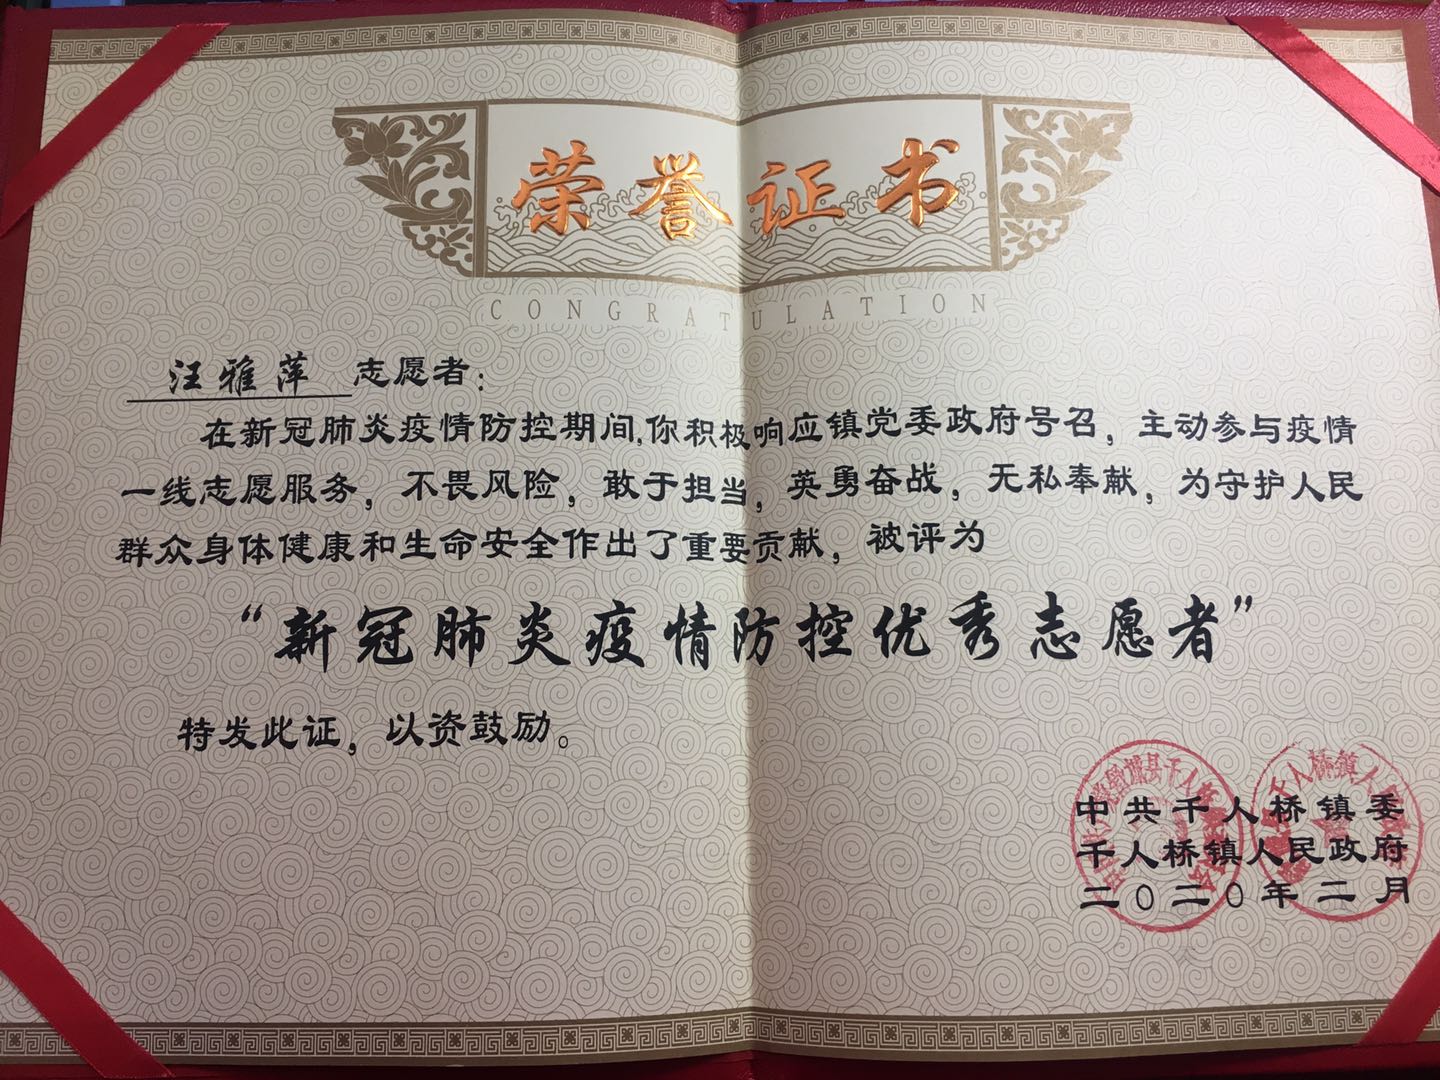 荣誉证书
CONGRATULATION
汪雅萍 志愿者：
在新冠肺炎疫情防控期间,你积极响应镇党委政府号召，主动参与疫情
一线志愿服务，不畏风险，敢于担当，英勇奋战，无私奉献，为守护人民
群众身体健康和生命安全作出了重要贡献，被评为
“新冠肺炎疫情防控优秀志愿者”
特发此证，以资鼓励。
中共千人桥镇委
千人桥镇人民政府
二〇二〇年二月